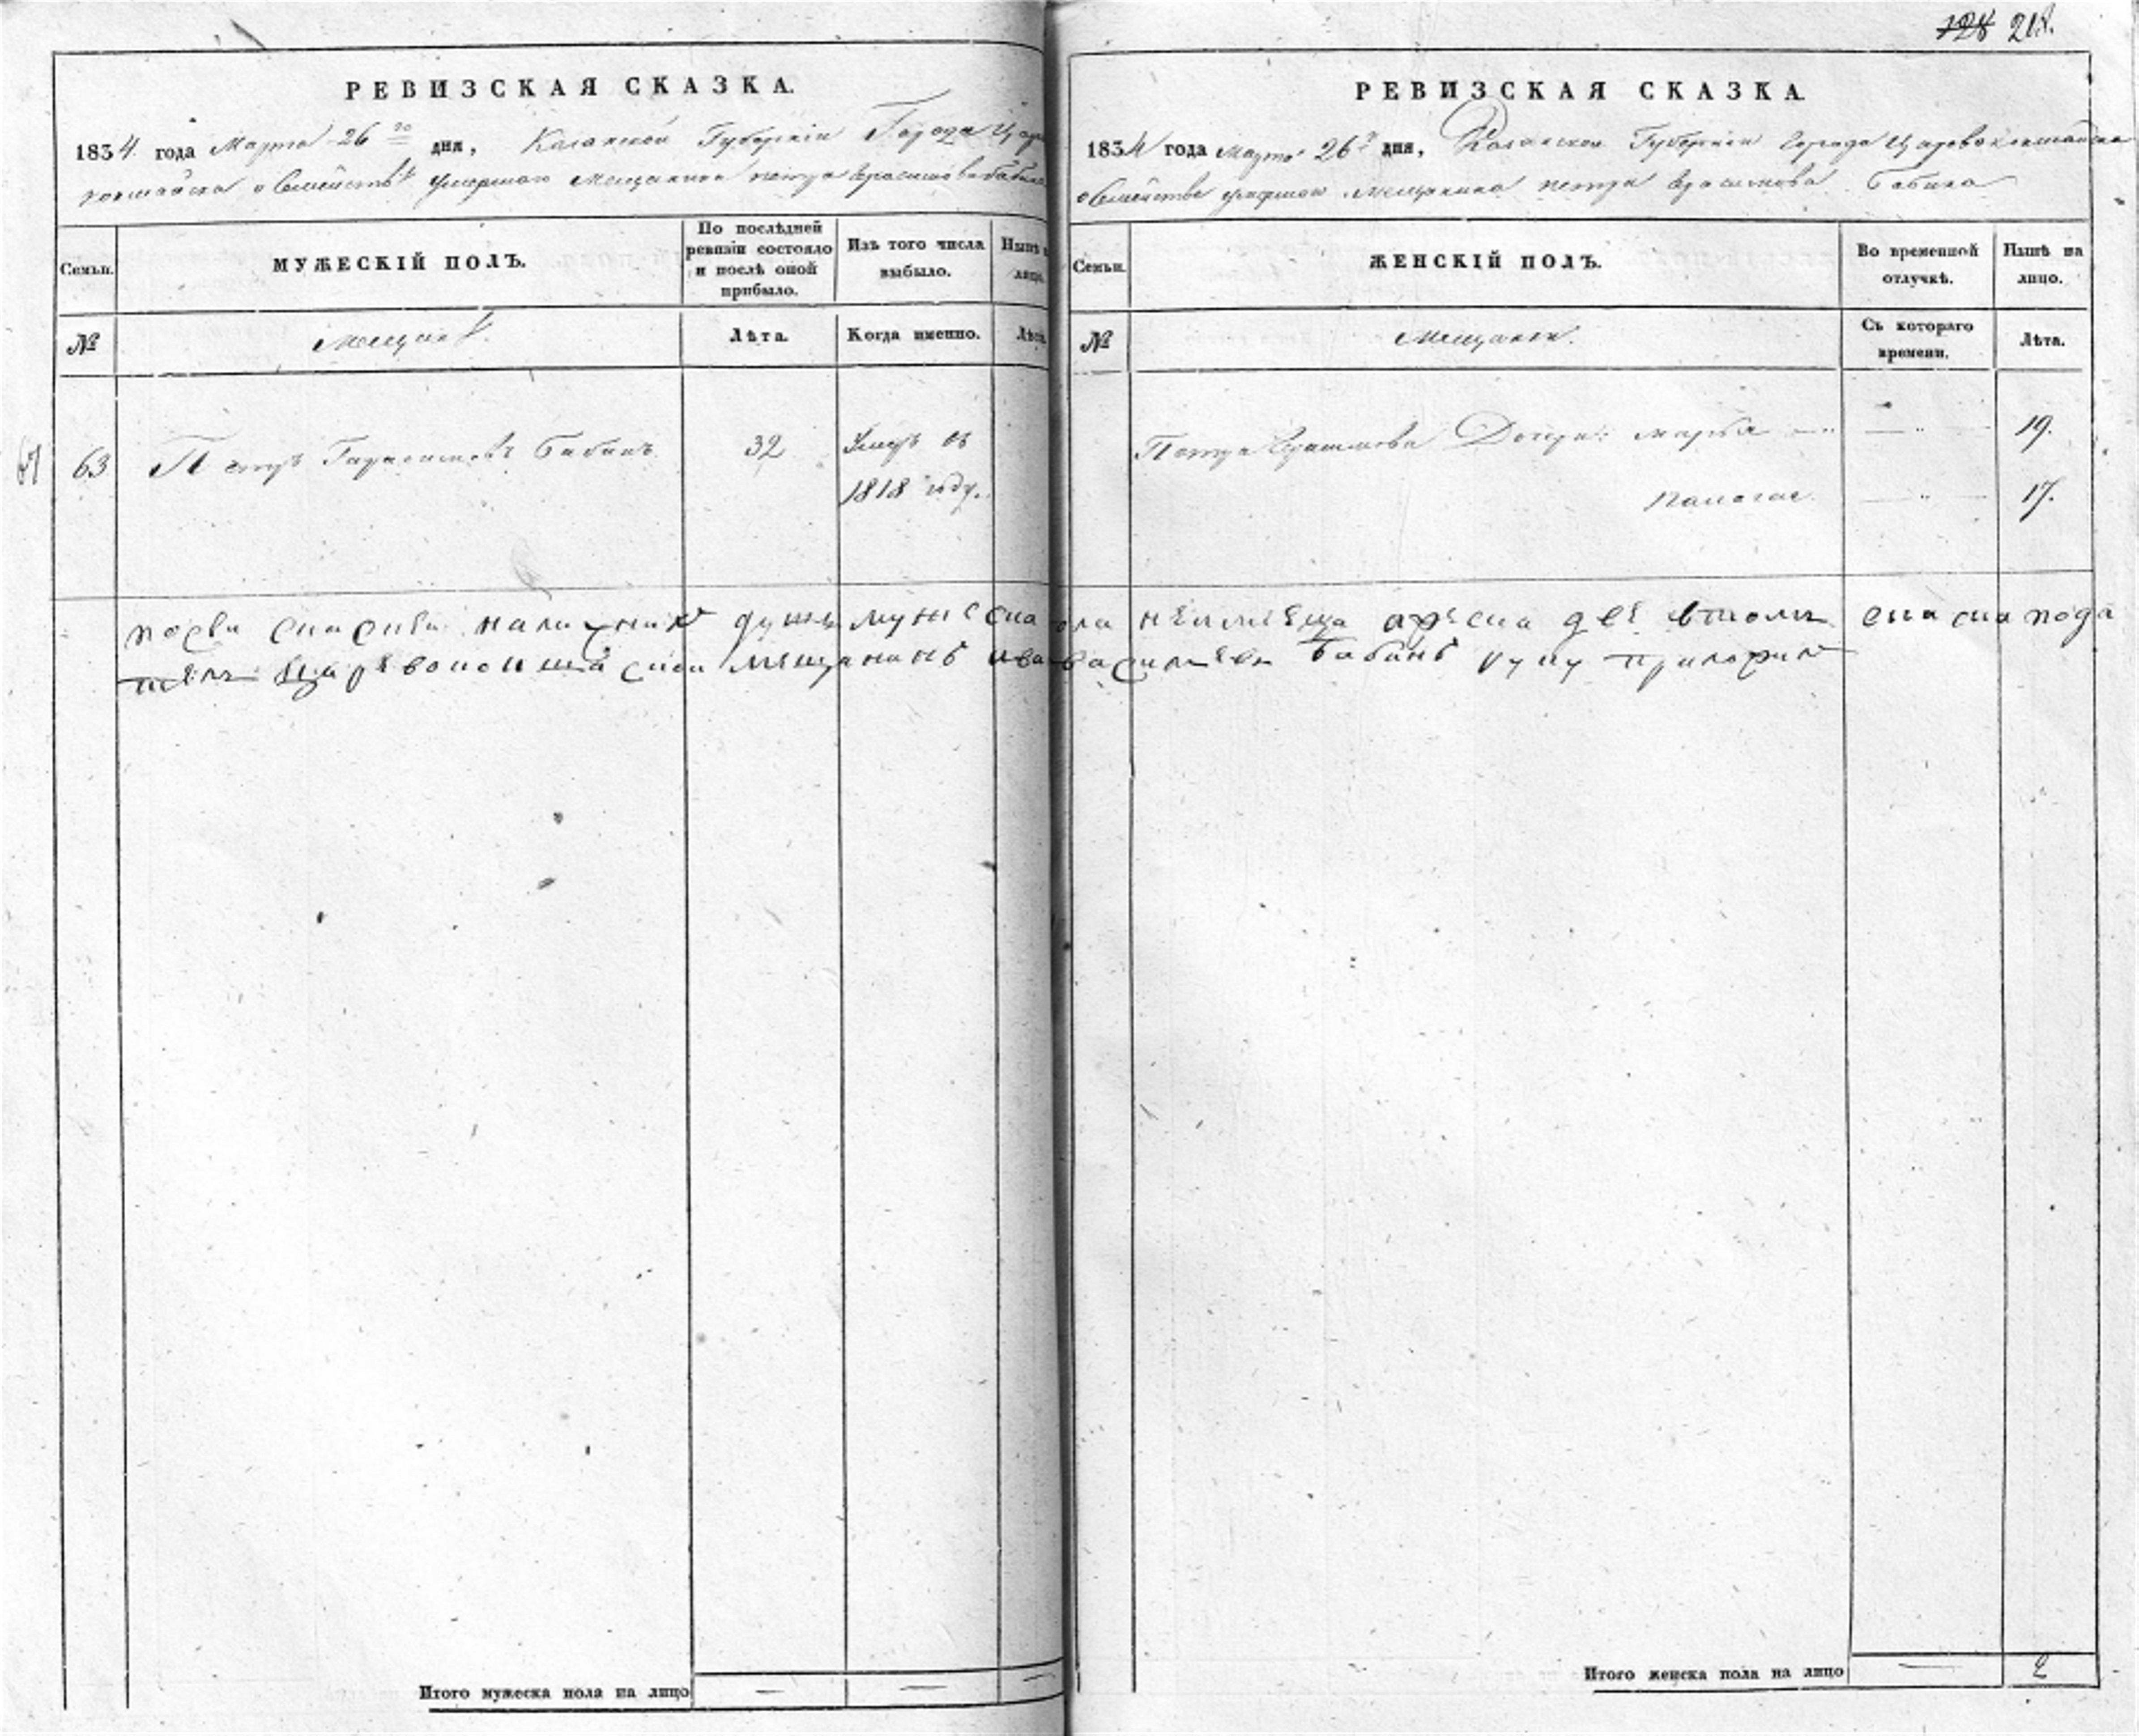 РЕВИЗСКАЯ СКАЗКА.
1834 года Марта 26го дня, Казанской Губернiи Города Царе
вокшайска о Семействѣ умершаго Мещанина петра Ерасимова бабина
Семьи.
МУЖЕСКIЙ ПОЛЪ.
По послѣдней ревизiи состояло и послѣ оной прибыло.
Изъ того числа выбыло.
Нынѣ на лицо.
№
мещане
Лѣта.
Когда именно.
Лѣта.
61
63 Петръ Гарасимовъ Бабинъ 32 Умеръ въ
1818 году.
Итого мужеска пола на лицо — — —
128 218.
РЕВИЗСКАЯ СКАЗКА.
1834 года Марта 26го дня, Казанской Губернiи города Царевококшайска
о Семействе умершаго мещанина петра Ерасимова Бабина
Семьи.
ЖЕНСКIЙ ПОЛЪ.
Во временной отлучкѣ.
Нынѣ на лицо.
№
мещанки.
Съ котораго времени.
Лѣта.
Петра Ерасимова Дочери: марья — 19.
палагея — 17.
посеи скаски наличник душъ мужеска пола неимееца а женска две втомъ
Бабинъ руку приложил
Итого женска пола на лицо — 2